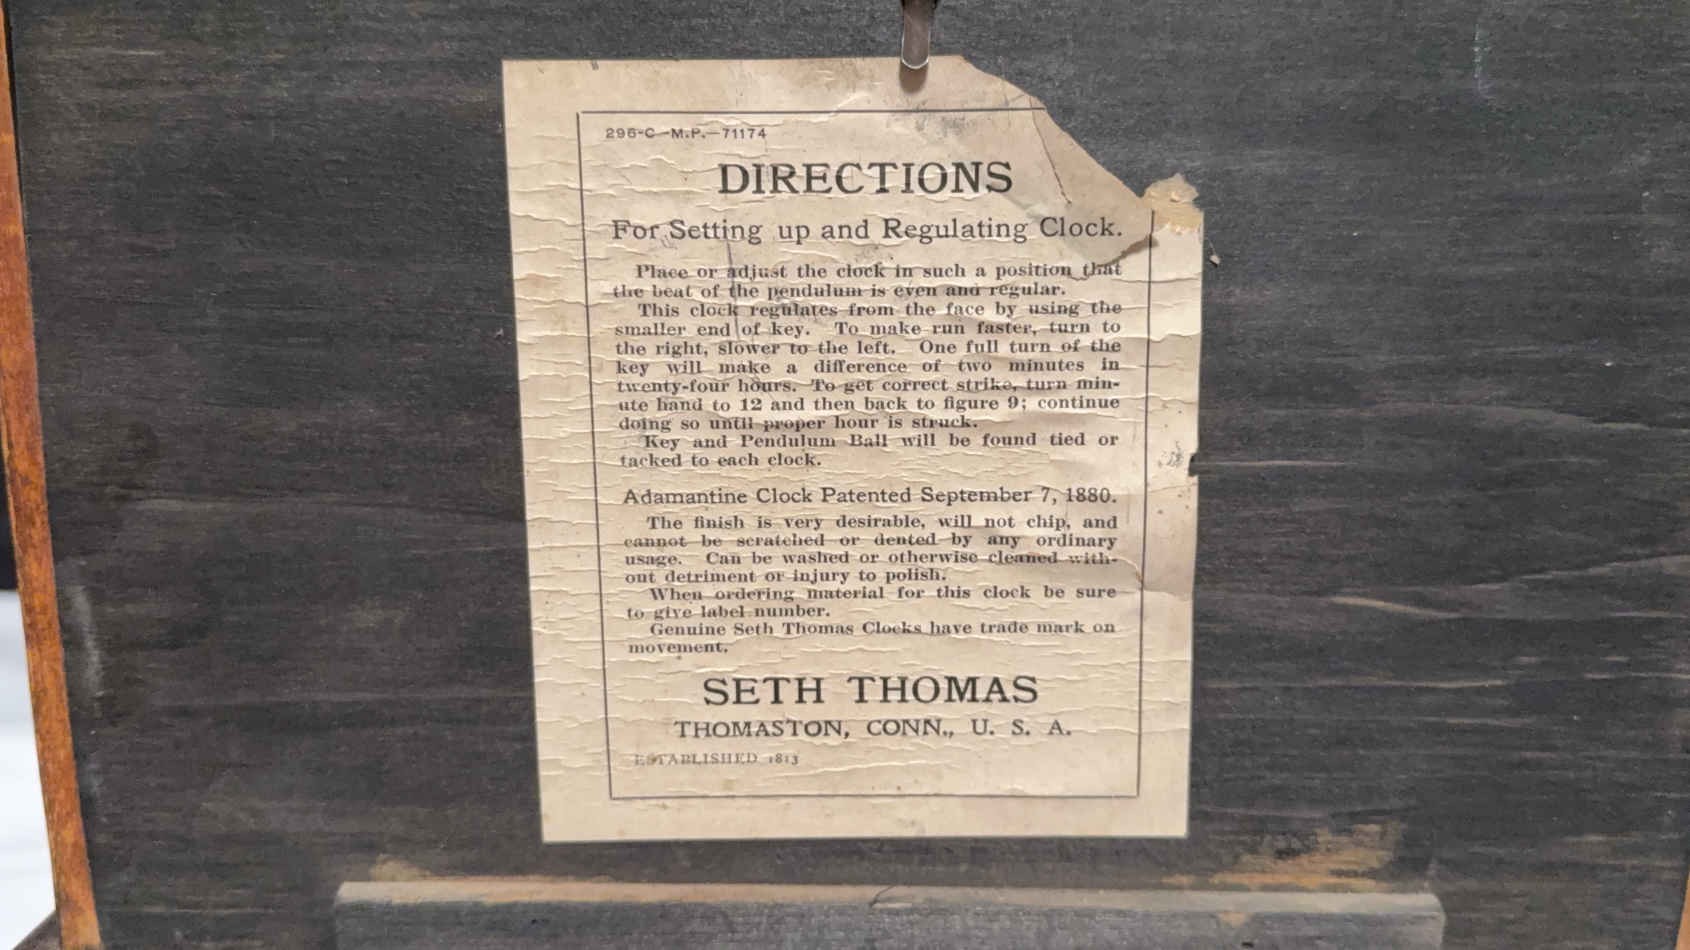 296-C-M.P.-71174
DIRECTIONS
For Setting up and Regulating Clock.
Place or adjust the clock in such a position that
the beat of the pendulum is even and regular.
This clock regulates from the face by using the
smaller end of key. To make run faster, turn to
the right, slower to the left. One full turn of the
key will make a difference of two minutes in
twenty-four hours. To get correct strike, turn min-
ute hand to 12 and then back to figure 9; continue
doing so until proper hour is struck.
Key and Pendulum Ball will be found tied or
tacked to each clock.
Adamantine Clock Patented September 7, 1880.
The finish is very desirable, will not chip, and
cannot be scratched or dented by any ordinary
usage. Can be washed or otherwise cleaned with-
out detriment or injury to polish.
When ordering material for this clock be sure
to give label number.
Genuine Seth Thomas Clocks have trade mark on
movement.
SETH THOMAS
THOMASTON, CONN., U. S. A.
ESTABLISHED 1813